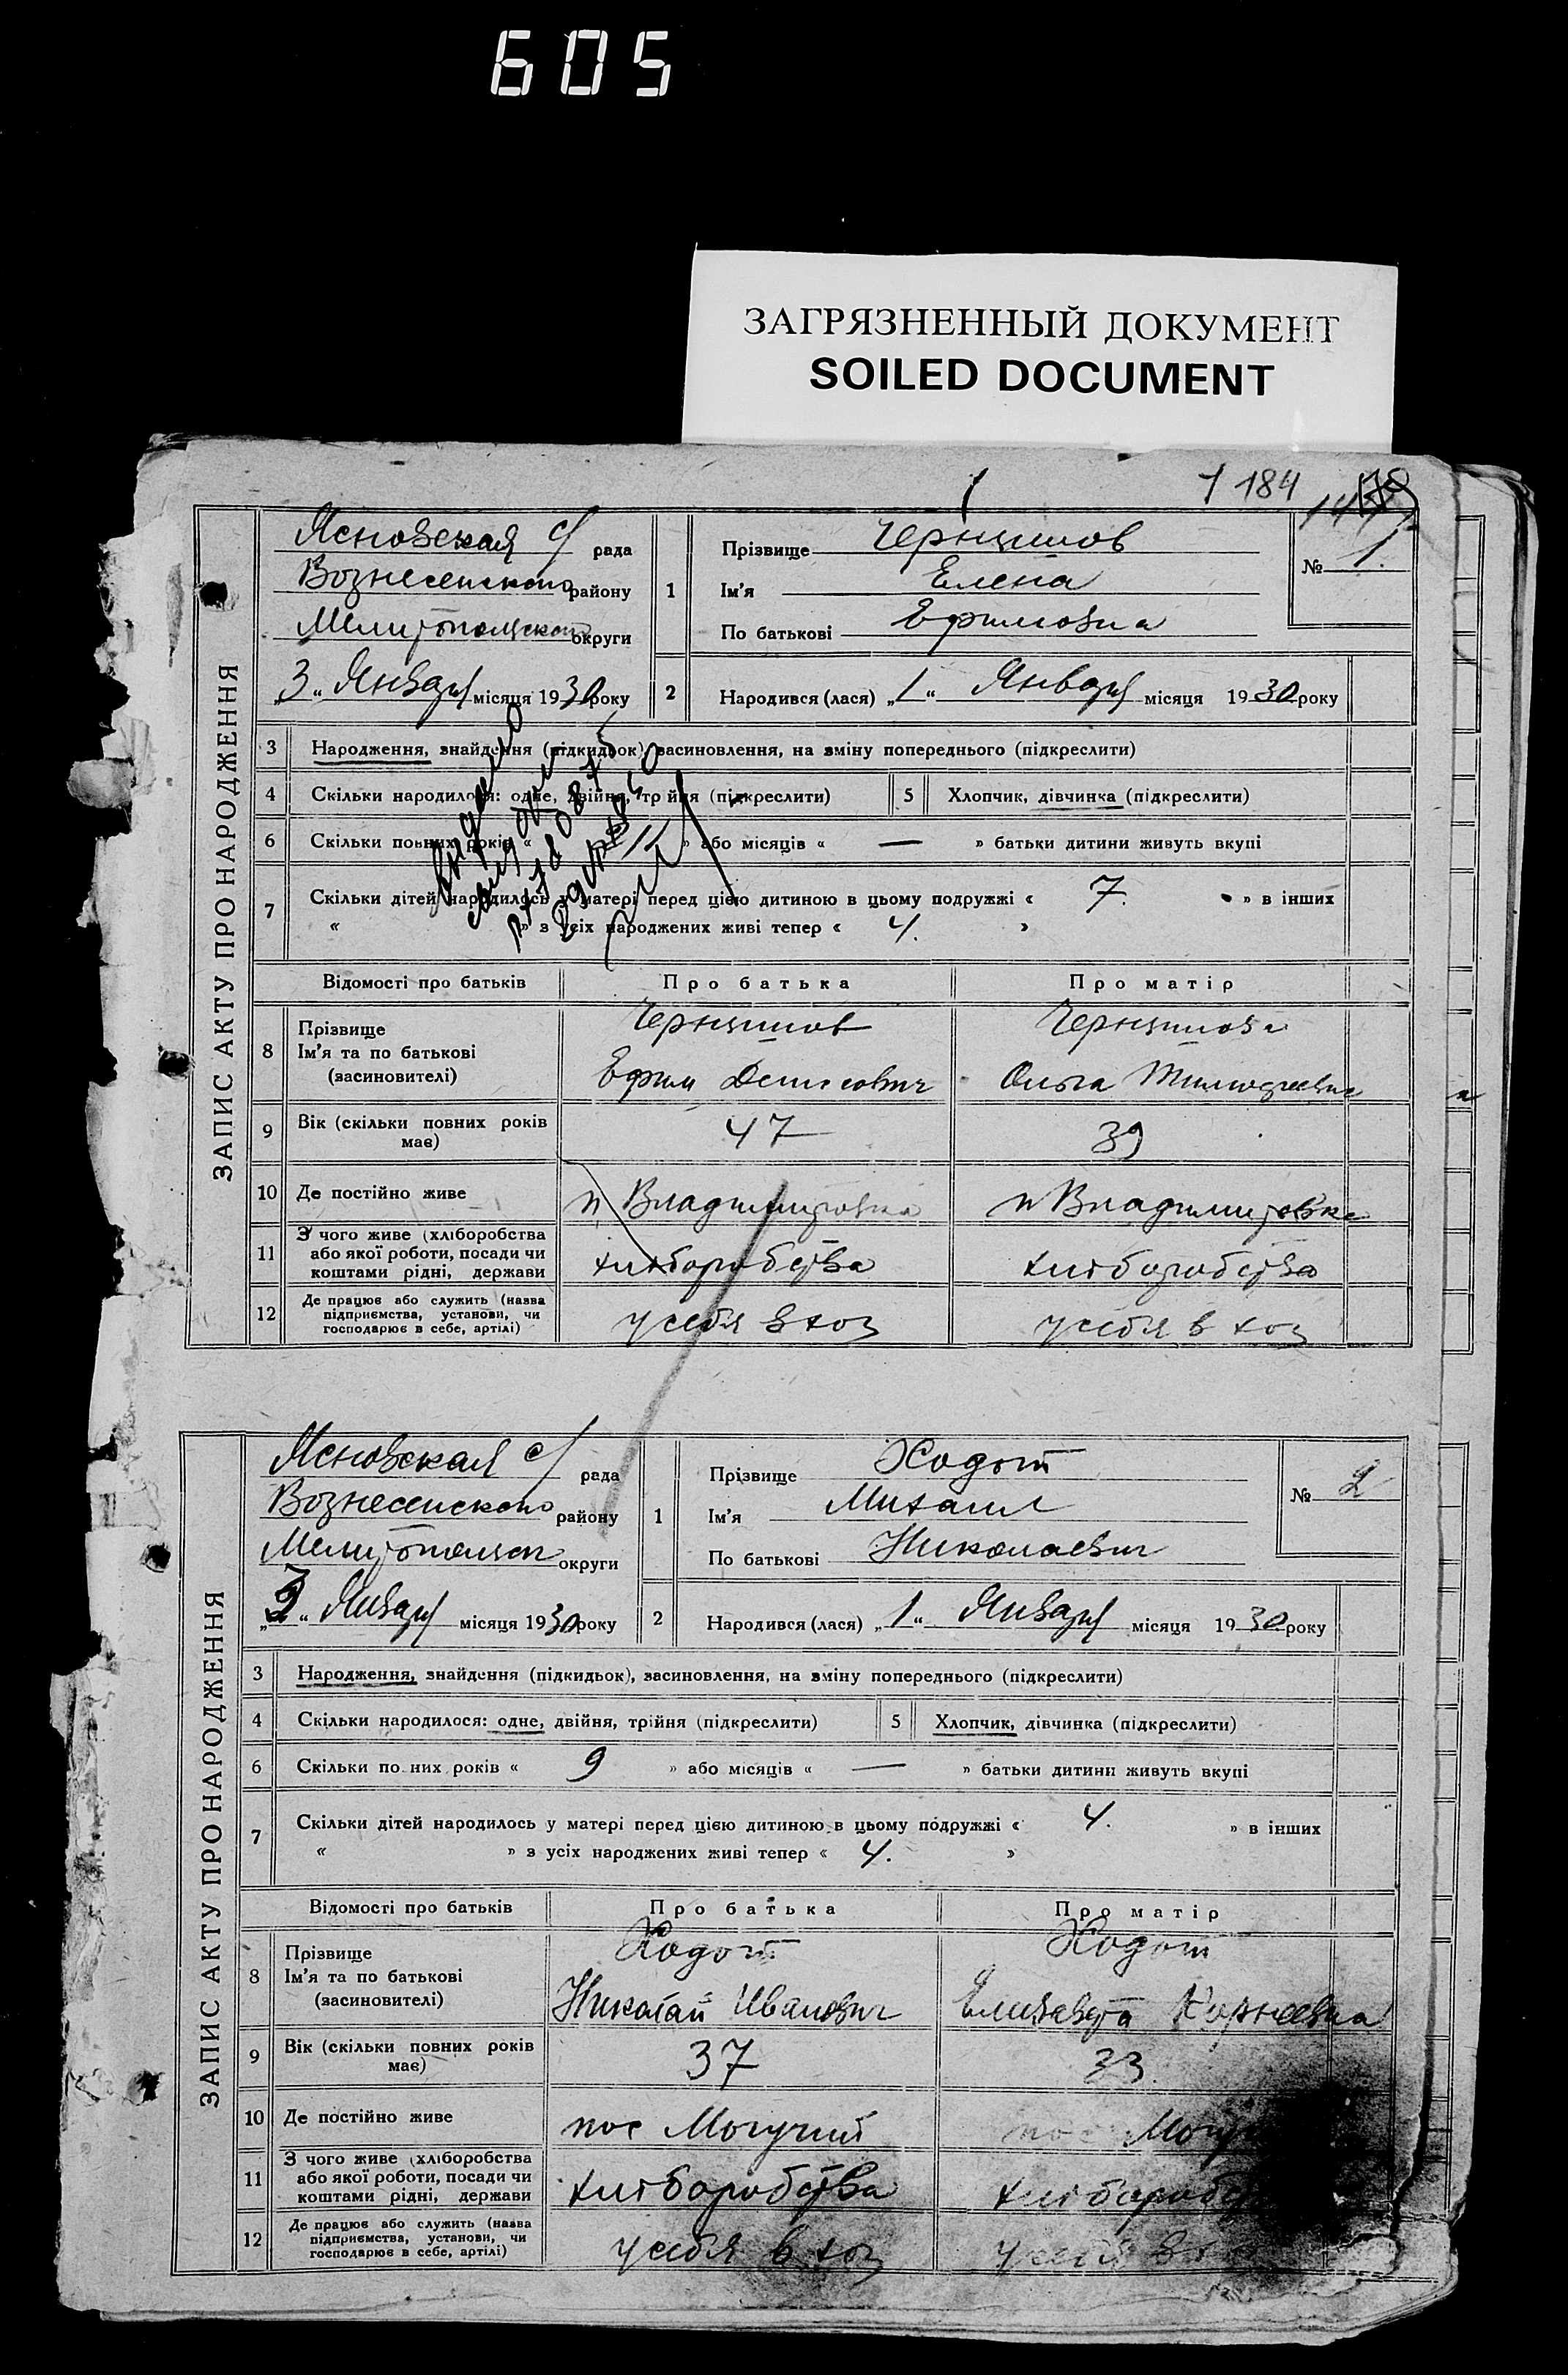 605
ЗАГРЯЗНЕННЫЙ ДОКУМЕНТ
SOILED DOCUMENT
1 184
ЗАПИС АКТУ ПРО НАРОДЖЕННЯ
Ясновская с/ рада
Вознесенского району
Мелитопольской округи
„3„ Января місяця 1930 року
1 Прізвище
Ім'я Елена
По батькові Ефимовна
№ 1.
2 Народився (лася) „1„ Января місяця 1930 року
3 Народження, знайдення (підкидьок), засиновлення, на зміну попереднього (підкреслити)
4 Скільки народилося: одне, двійня, трійня (підкреслити) 5 Хлопчик, дівчинка (підкреслити)
6 Скільки повних років « 11 » або місяців « — » батьки дитини живуть вкупі
7 Скільки дітей народилось у матері перед цією дитиною в цьому подружжі « 7. » в інших
« » з усіх народжених живі тепер « 4. »
Відомості про батьків Про батька Про матір
8 Прізвище
Ім'я та по батькові Ефим Денисович Ольга Тимофеевна
(засиновителі)
9 Вік (скільки повних років має) 47 39
10 Де постійно живе п Владимировка п Владимировка
11 З чого живе (хліборобства або якої роботи, посади чи коштами рідні, держави хліборобства хліборобства
12 Де працює або служить (назва підприємства, установи, чи господарює в себе, артілі) у себя в хоз у себя в хоз
ЗАПИС АКТУ ПРО НАРОДЖЕННЯ
Ясновская с/ рада
Вознесенского району
Мелитопольск округи
„3„ Января місяця 1930 року
1 Прізвище Ходот
Ім'я Михаил
По батькові Николаевич
№ 2
2 Народився (лася) „1„ Января місяця 1930 року
3 Народження, знайдення (підкидьок), засиновлення, на зміну попереднього (підкреслити)
4 Скільки народилося: одне, двійня, трійня (підкреслити) 5 Хлопчик, дівчинка (підкреслити)
6 Скільки по них років « 9 » або місяців « — » батьки дитини живуть вкупі
7 Скільки дітей народилось у матері перед цією дитиною в цьому подружжі « 4. » в інших
« » з усіх народжених живі тепер « 4. »
Відомості про батьків Про батька Про матір
8 Прізвище Ходот Ходот
Ім'я та по батькові Николай Иванович Елизавета Корнеевна
(засиновителі)
9 Вік (скільки повних років має) 37 33
10 Де постійно живе пос Могучий пос
11 З чого живе (хліборобства або якої роботи, посади чи коштами рідні, держави хліборобства
12 Де працює або служить (назва підприємства, установи, чи господарює в себе, артілі) у себя в хоз у себя в